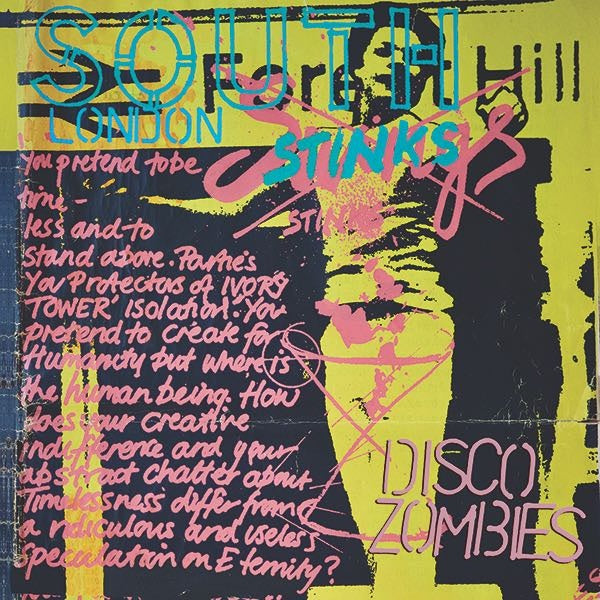 SOUTH
Forest Hill
LONDON
STINKS
STINKS
You pretend to be
time-
less and to
stand above. Partne's
You Protectors of IVORY
TOWER' ISolation'. You
pretend to create for
Humanity but where is
the human being. How
does your creative
indifference and your
abstract chatter about
Timelessness differ from
a ridiculous and useless
speculation on Eternity?
DISCO
ZOMBIES